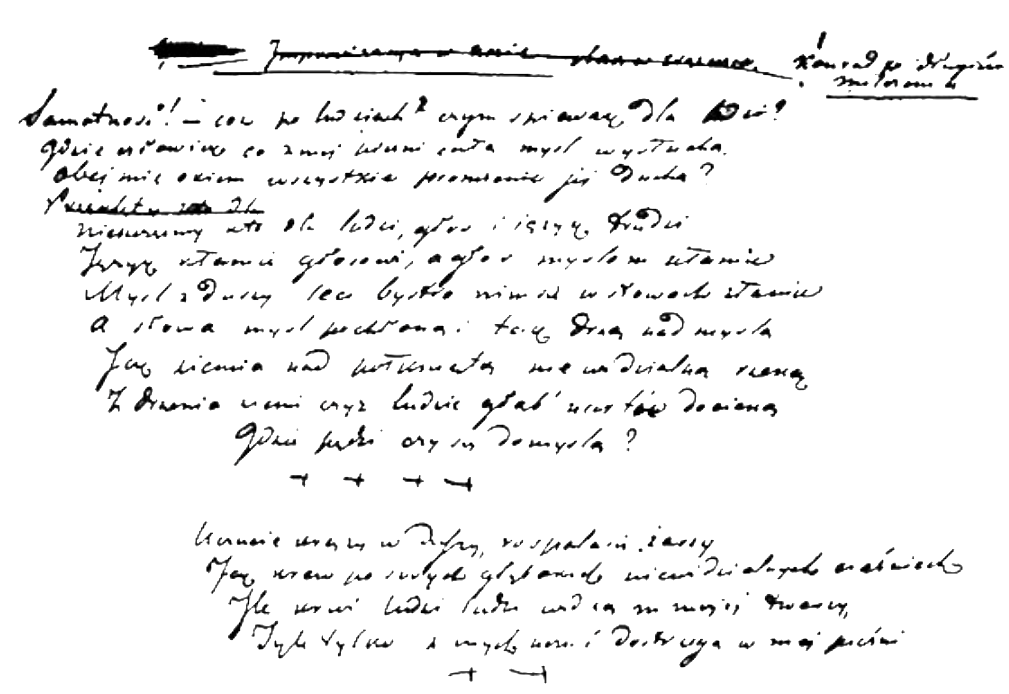 Konrad po długiém
milczeniu
Samotność! – cóż po ludziach? czym śpiewak dla ludzi?
Gdzie człowiek co z mej pieśni całą myśl wysłucha,
Obejmie okiem wszystkie promienie jej ducha?
kto dla
Nieszczęsny kto dla ludzi, głos i język trudzi
Język kłamie głosowi, a głos myślom kłamie
Myśl z duszy leci bystro nim się w słowach złamie
A słowa myśl pochłoną i tak drżą nad myslą
Jak ziemia nad połknientą niewidzialną rzeką
Z drżenia ziemi czyż ludzie głąb nurtów docieką
Gdzie pędzi czy się domyslą?
+ + + +
krąży w duszy, rozpala się, żarzy
Jak krew po swych głębokich niewidzialnych cieśniach
Ile krwi ludzie widzą w mojej twarzy,
Tyle tylko z mych dostrzegą w mej pieśni
+ +